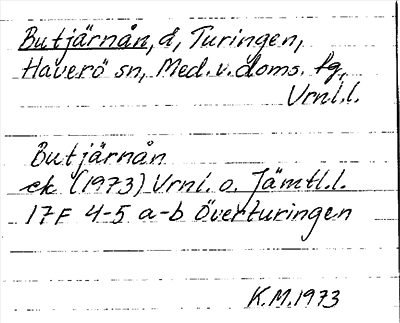 Butjärnån, å, Turingen,
Haverö sn, Med. v. doms. fg,
Vrnl.l.
Butjärnån
ek (1973) Vrnl. o. Jämtl.l.
17F 4-5 a-b Överturingen
K.M.1973